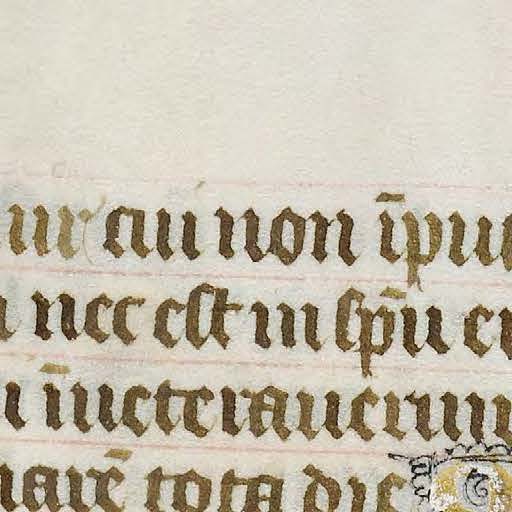 uir cui non īpu
nec est in sp̄u ei
īueterauerun
marē tota die